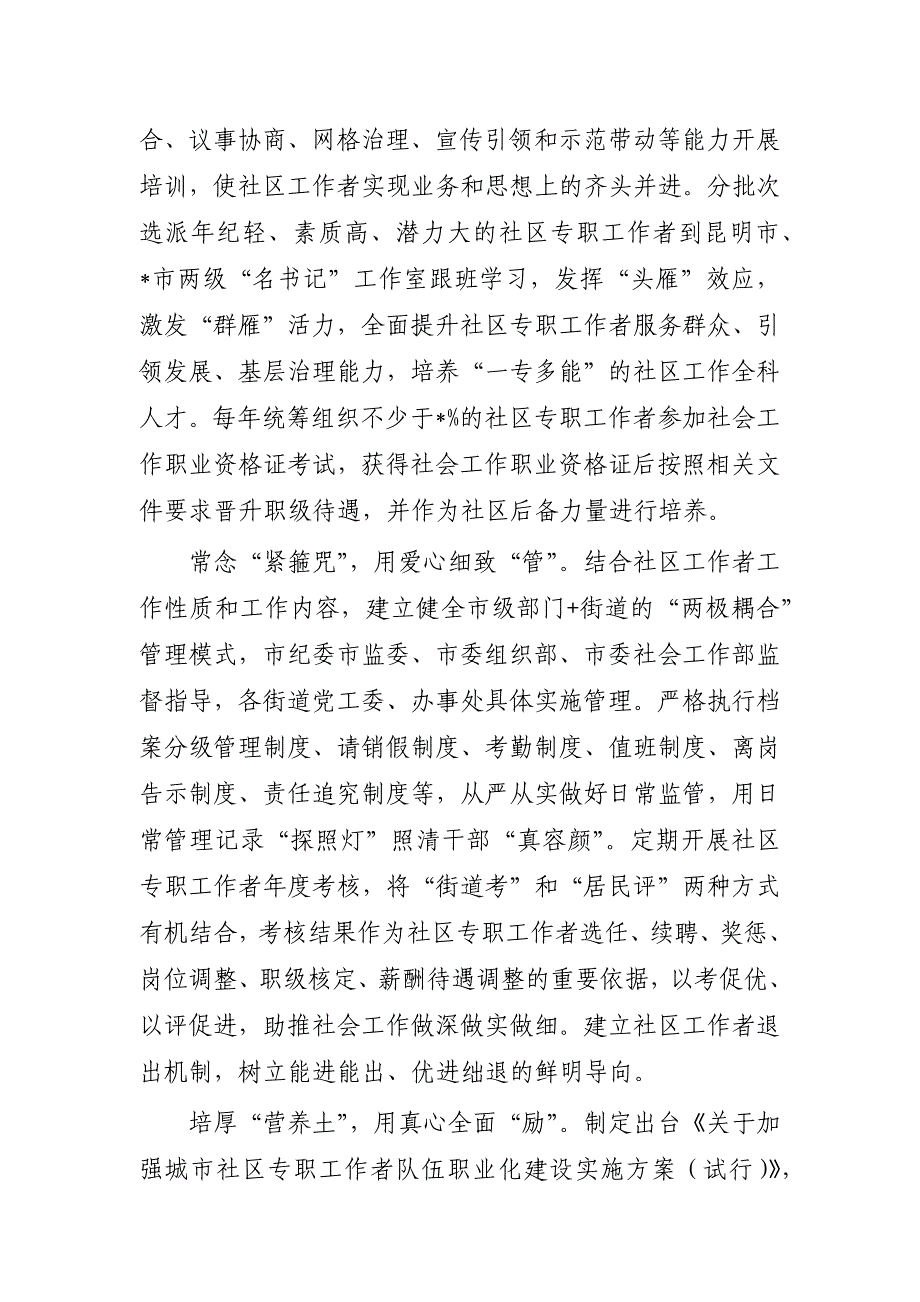 合、议事协商、网格治理、宣传引领和示范带动等能力开展
培训，使社区工作者实现业务和思想上的齐头并进。分批次
选派年纪轻、素质高、潜力大的社区专职工作者到昆明市、
*市两级“名书记”工作室跟班学习，发挥“头雁”效应，
激发“群雁”活力，全面提升社区专职工作者服务群众、引
领发展、基层治理能力，培养“一专多能”的社区工作全科
人才。每年统筹组织不少于*%的社区专职工作者参加社会工
作职业资格证考试，获得社会工作职业资格证后按照相关文
件要求晋升职级待遇，并作为社区后备力量进行培养。
常念“紧箍咒”，用爱心细致“管”。结合社区工作者工
作性质和工作内容，建立健全市级部门+街道的“两极耦合”
管理模式，市纪委市监委、市委组织部、市委社会工作部监
督指导，各街道党工委、办事处具体实施管理。严格执行档
案分级管理制度、请销假制度、考勤制度、值班制度、离岗
告示制度、责任追究制度等，从严从实做好日常监管，用日
常管理记录“探照灯”照清干部“真容颜”。定期开展社区
专职工作者年度考核，将“街道考”和“居民评”两种方式
有机结合，考核结果作为社区专职工作者选任、续聘、奖惩、
岗位调整、职级核定、薪酬待遇调整的重要依据，以考促优、
以评促进，助推社会工作做深做实做细。建立社区工作者退
出机制，树立能进能出、优进绌退的鲜明导向。
培厚“营养土”，用真心全面“励”。制定出台《关于加
强城市社区专职工作者队伍职业化建设实施方案（试行）》，